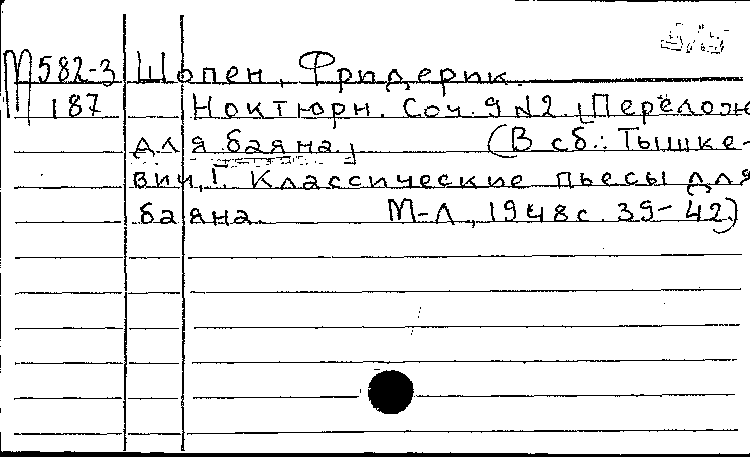 М582-3 Шопен, Фридерик.
187 Ноктюрн. Соч. 9 №2. [Перелож
для баяна.] (В сб.: Тышке-
вич, Г. Классические пьесы для
баяна. М-Л., 1948 с. 39-42)